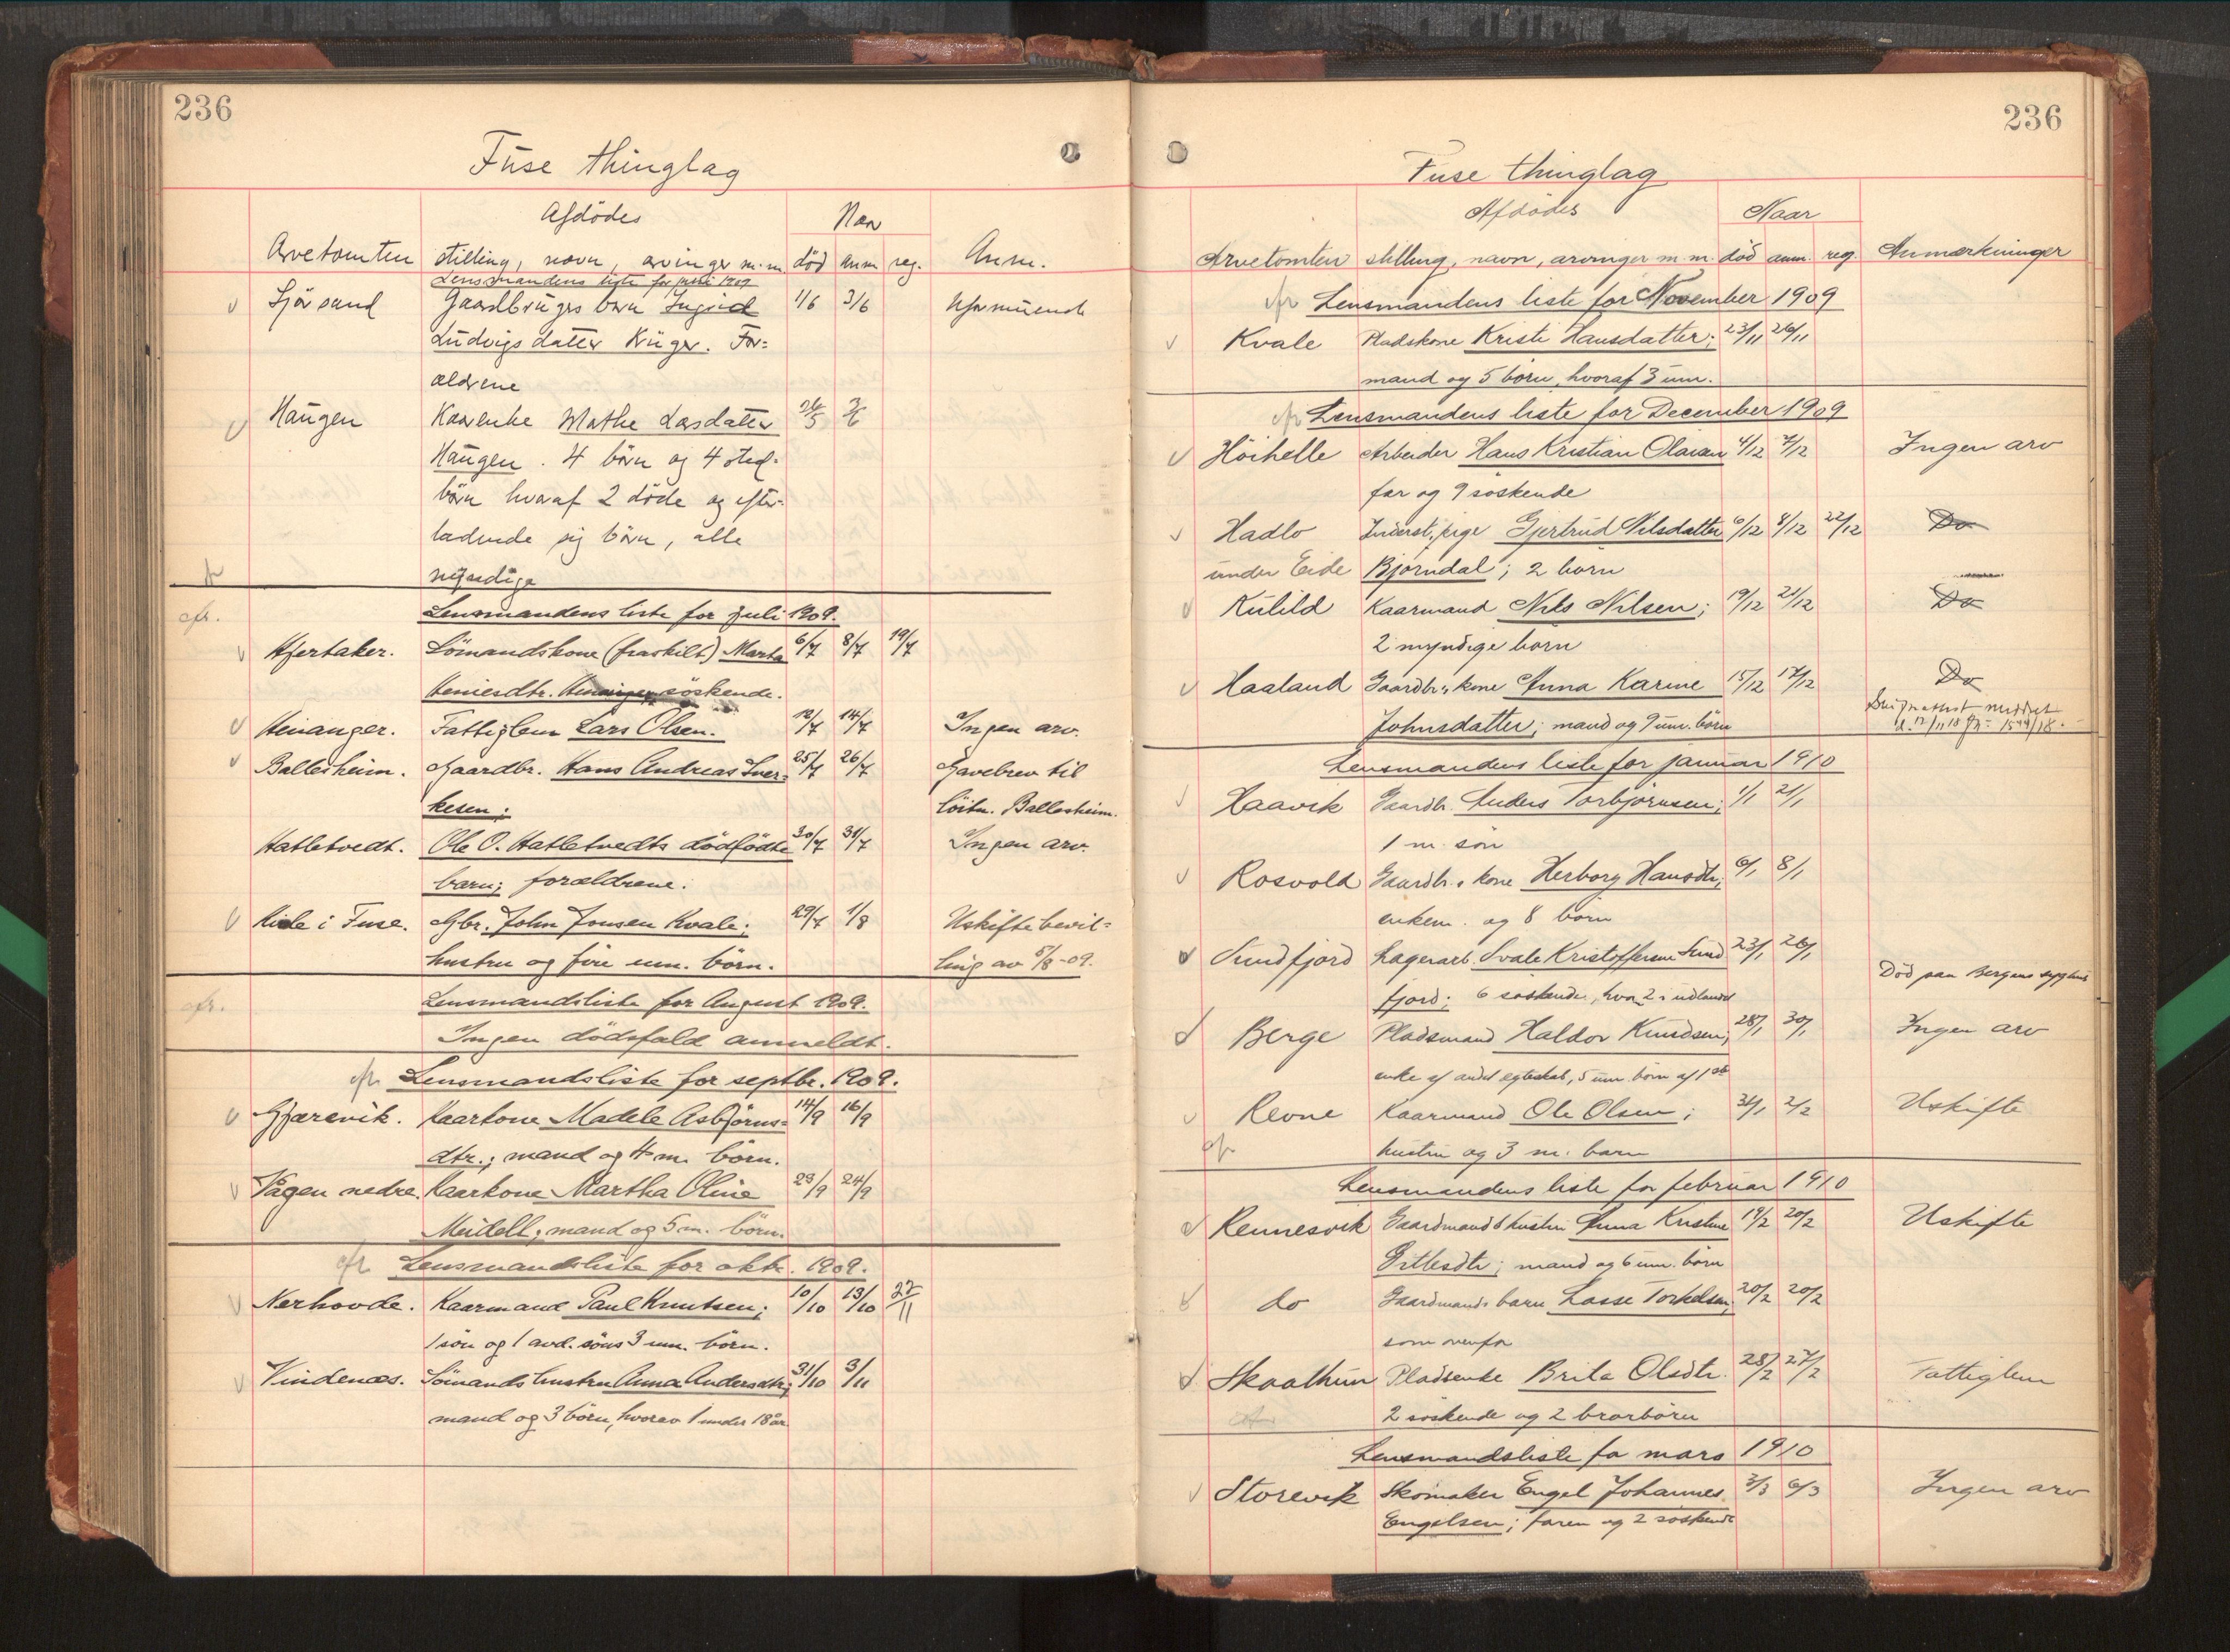 236
Fuse thinglag
Afdödes
Naar
Arvetomten stilling, navn, arvinger m.m. död anm reg. Anm.
Lensmandens liste for juni 1909
Sjösand Gaardbrugers barn Ingrid 1/6 3/6 Uformuende
Ludvigsdatter Krüger. For-
ældrene
Haugen Kaarenke Mathe Larsdatter 26/5 3/6
Haugen. 4 börn og 4 sted-
börn hvoraf 2 döde og efter-
ladende sig börn, alle
myndige
cfr. Lensmandens liste for juli 1909.
Hjertaker. Sömandskone (fraskilt) Marta 6/7 8/7 19/7
söskende.
Heianger. Fattiglem Lars Olsen. 12/7 14/7 Ingen arv.
Ballesheim. Gaardbr. Hans Andreas Sver- 25/7 26/7 Gavebrev til
kesen; Ballesheim.
Hatletvedt. Ole O. Hatletvedts dödfödte 30/7 31/7 Ingen arv.
barn; forældrene.
i Fuse. Gbr. John Jonsen Kvale; 29/7 1/8 Uskiftebevil-
hustru og fire um. börn. ling av 5/8-09.
cfr. Lensmandsliste for August 1909.
Ingen dödsfald anmeldt.
cfr. Lensmandsliste for septbr. 1909.
Gjærevik. Kaarkone Madele Asbjörns- 14/9 16/9
dtr.; mand og 4 m. börn.
Vågen nedre. Kaarkone Martha Oline 23/9 24/9
Meidell; mand og 5 m. börn.
cfr Lensmandsliste for oktr. 1909.
Nerhovde. Kaarmand Paul Knutsen; 10/10 13/10 27/11
1 sön og 1 avd. söns 3 um. börn.
Vindenæs. Sömands hustru Anna Andersdtr; 31/10 3/11
mand og 3 börn, hvorav 1 under 18 år
236
Fuse thinglag
Afdödes Naar
Arvetomten stilling, navn, arvinger m.m. död anm. reg. Anmærkninger
cfr Lensmandens liste for November 1909
Kvale Pladskone Kristi Hansdatter; 23/11 26/11
mand og 5 börn, hvoraf 3 um.
cfr Lensmandens liste for December 1909
Höihelle Arbeider Hans Kristian Olaisen 4/12 7/12 Ingen arv
far og 9 söskende
Hadlo Inderst, pige Gjertrud Nilsdatter 6/12 8/12 22/12 Do
under Eide Bjorndal; 2 born
Kulild Kaarmand Nils Nilsen; 19/12 21/12 Do
2 myndige born
Haaland Gaardbr.s kone Anna Karine 15/12 17/12 Do
Johnsdatter; mand og 9 um. börn
Lensmandens liste for januar 1910
Haavik Gaardbr. Anders Torbjörnsen; 1/1 21/1
1 m. sön
Rosvold Gaardbr.s kone Herborg Hansdtr; 6/1 8/1
enkem. og 8 börn
Sundfjord Lagerarb. Svale Kristoffersen Sund 23/1 26/1 Död paa Bergens sygehus
fjord; 6 söskende, hvoraf 2 i udlandet
Berge Pladsmand Haldor Knudsen; 28/1 30/1 Ingen arv
enke af andet egteskab, 5 um. börn af 1ste
Revne Kaarmand Ole Olsen; 31/1 2/2 Uskifte
cfr hustru og 3 m. barn
Lensmandens liste for februar 1910
Rennesvik Gaardmands hustru Anna Kristine 19/2 20/2 Uskifte
Gitlesdtr; mand og 6 um. börn
do Gaardmands barn Lasse Torkelsen; 20/2 20/2
som ovenfor
Skaathun Pladsenke Brita Olsdtr. 28/2 27/2 Fattiglem
2 söskende og 2 brorbörn
Lensmandsliste for mars 1910
Storevik Skomaker Engel Johannes 3/3 6/3 Ingen arv
Engelsen; faren og 2 söskende